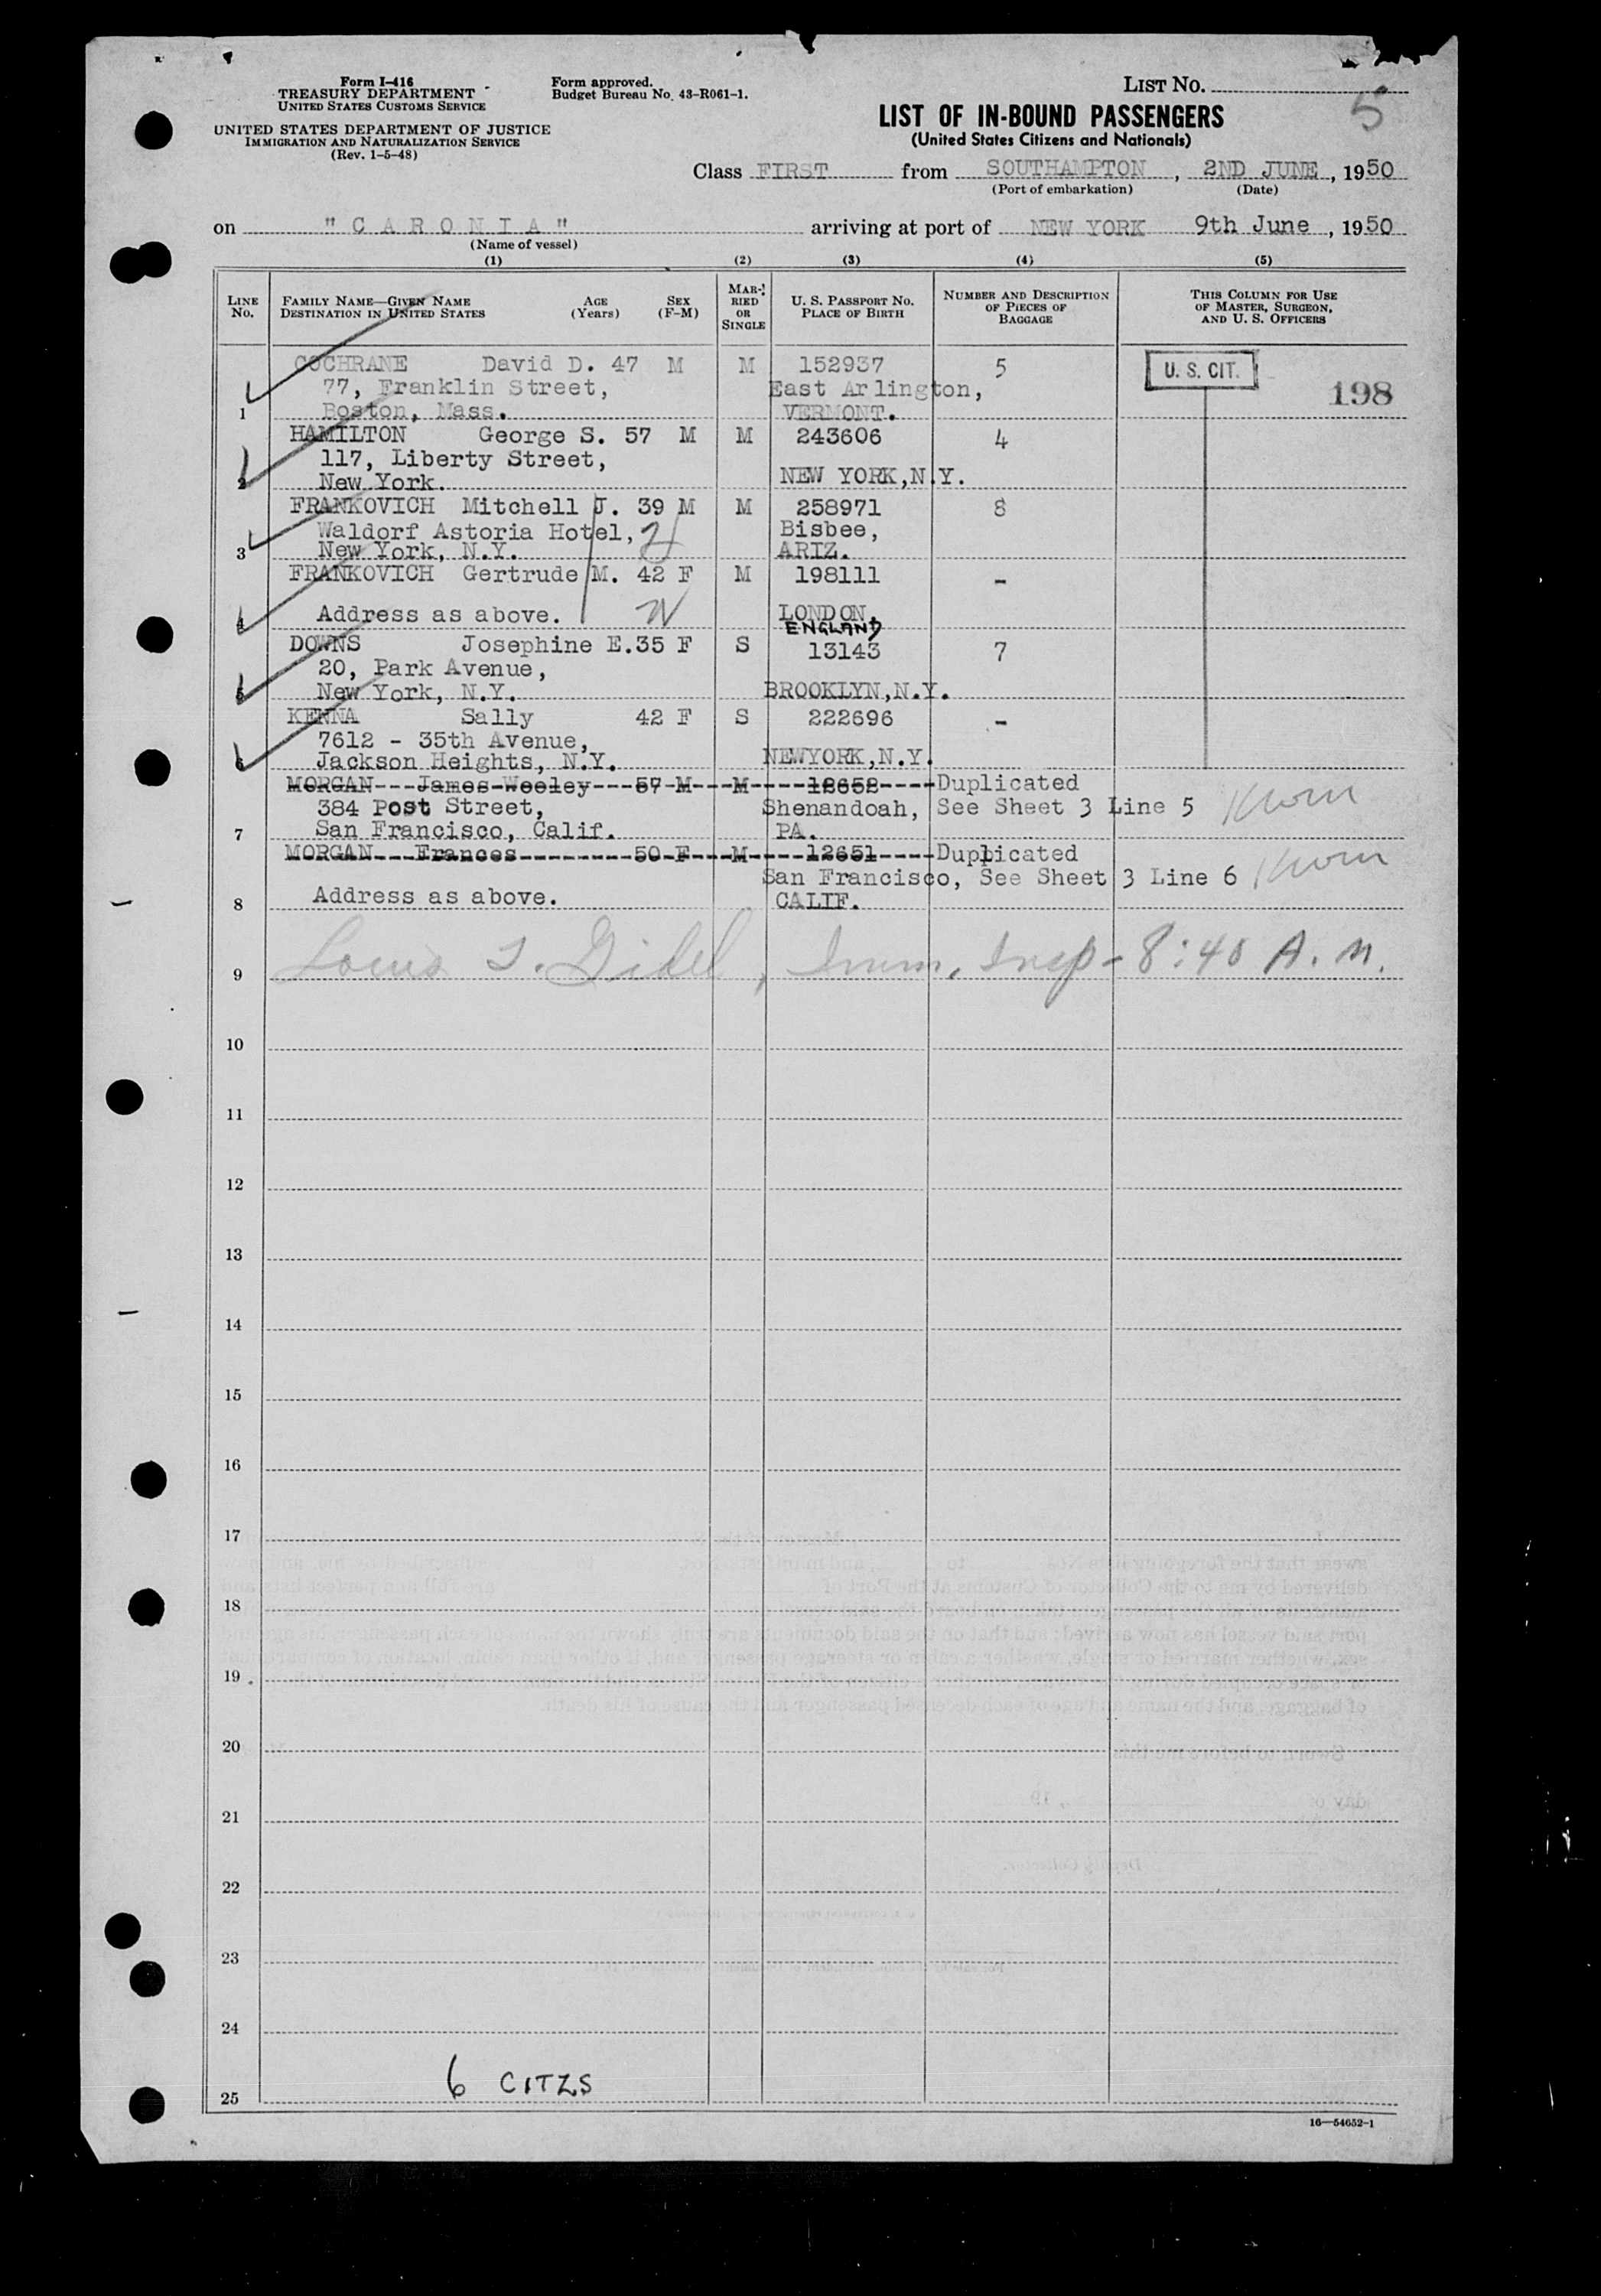 Form I-416
TREASURY DEPARTMENT
UNITED STATES CUSTOMS SERVICE
UNITED STATES DEPARTMENT OF JUSTICE
IMMIGRATION AND NATURALIZATION SERVICE
(Rev. 1-5-48)
Form approved.
Budget Bureau No. 43-R061-1.
LIST NO.
5
LIST OF IN-BOUND PASSENGERS
(United States Citizens and Nationals)
Class FIRST from SOUTHAMPTON, 2ND JUNE, 1950
(Port of embarkation) (Date)
on "CARONIA" arriving at port of NEW YORK 9th June, 1950
(Name of vessel)
(1) (2) (3) (4) (5)
LINE NO.
FAMILY NAME—GIVEN NAME
DESTINATION IN UNITED STATES
AGE (Years)
SEX (F-M)
MARRIED OR SINGLE
U. S. PASSPORT NO.
PLACE OF BIRTH
NUMBER AND DESCRIPTION OF PIECES OF BAGGAGE
THIS COLUMN FOR USE OF MASTER, SURGEON, AND U. S. OFFICERS
COCHRANE David D. 47 M M 152937 5 U. S. CIT.
77, Franklin Street, East Arlington, 198
1 Boston, Mass. VERMONT.
HAMILTON George S. 57 M M 243606 4
117, Liberty Street,
2 New York. NEW YORK, N.Y.
FRANKOVICH Mitchell J. 39 M M 258971 8
Waldorf Astoria Hotel, Bisbee,
3 New York, N.Y. ARIZ.
FRANKOVICH Gertrude M. 42 F M 198111 -
4 Address as above. LONDON,
ENGLAND
DOWNS Josephine E. 35 F S 13143 7
20, Park Avenue,
5 New York, N.Y. BROOKLYN, N.Y.
KENNA Sally 42 F S 222696 -
7612 - 35th Avenue,
6 Jackson Heights, N.Y. NEWYORK, N.Y.
MORGAN---James-Weeley---57-M---M----12652-----Duplicated
384 Post Street, Shenandoah, See Sheet 3 Line 5
7 San Francisco, Calif. PA.
MORGAN---Frances--------50-F---M----12651-----Duplicated
San Francisco, See Sheet 3 Line 6
8 Address as above. CALIF.
9 Louis Imm. Insp - 8:40 A.M.
10
11
12
13
14
15
16
17
18
19
20
21
22
23
24
6 CITZS
25
16—54652-1